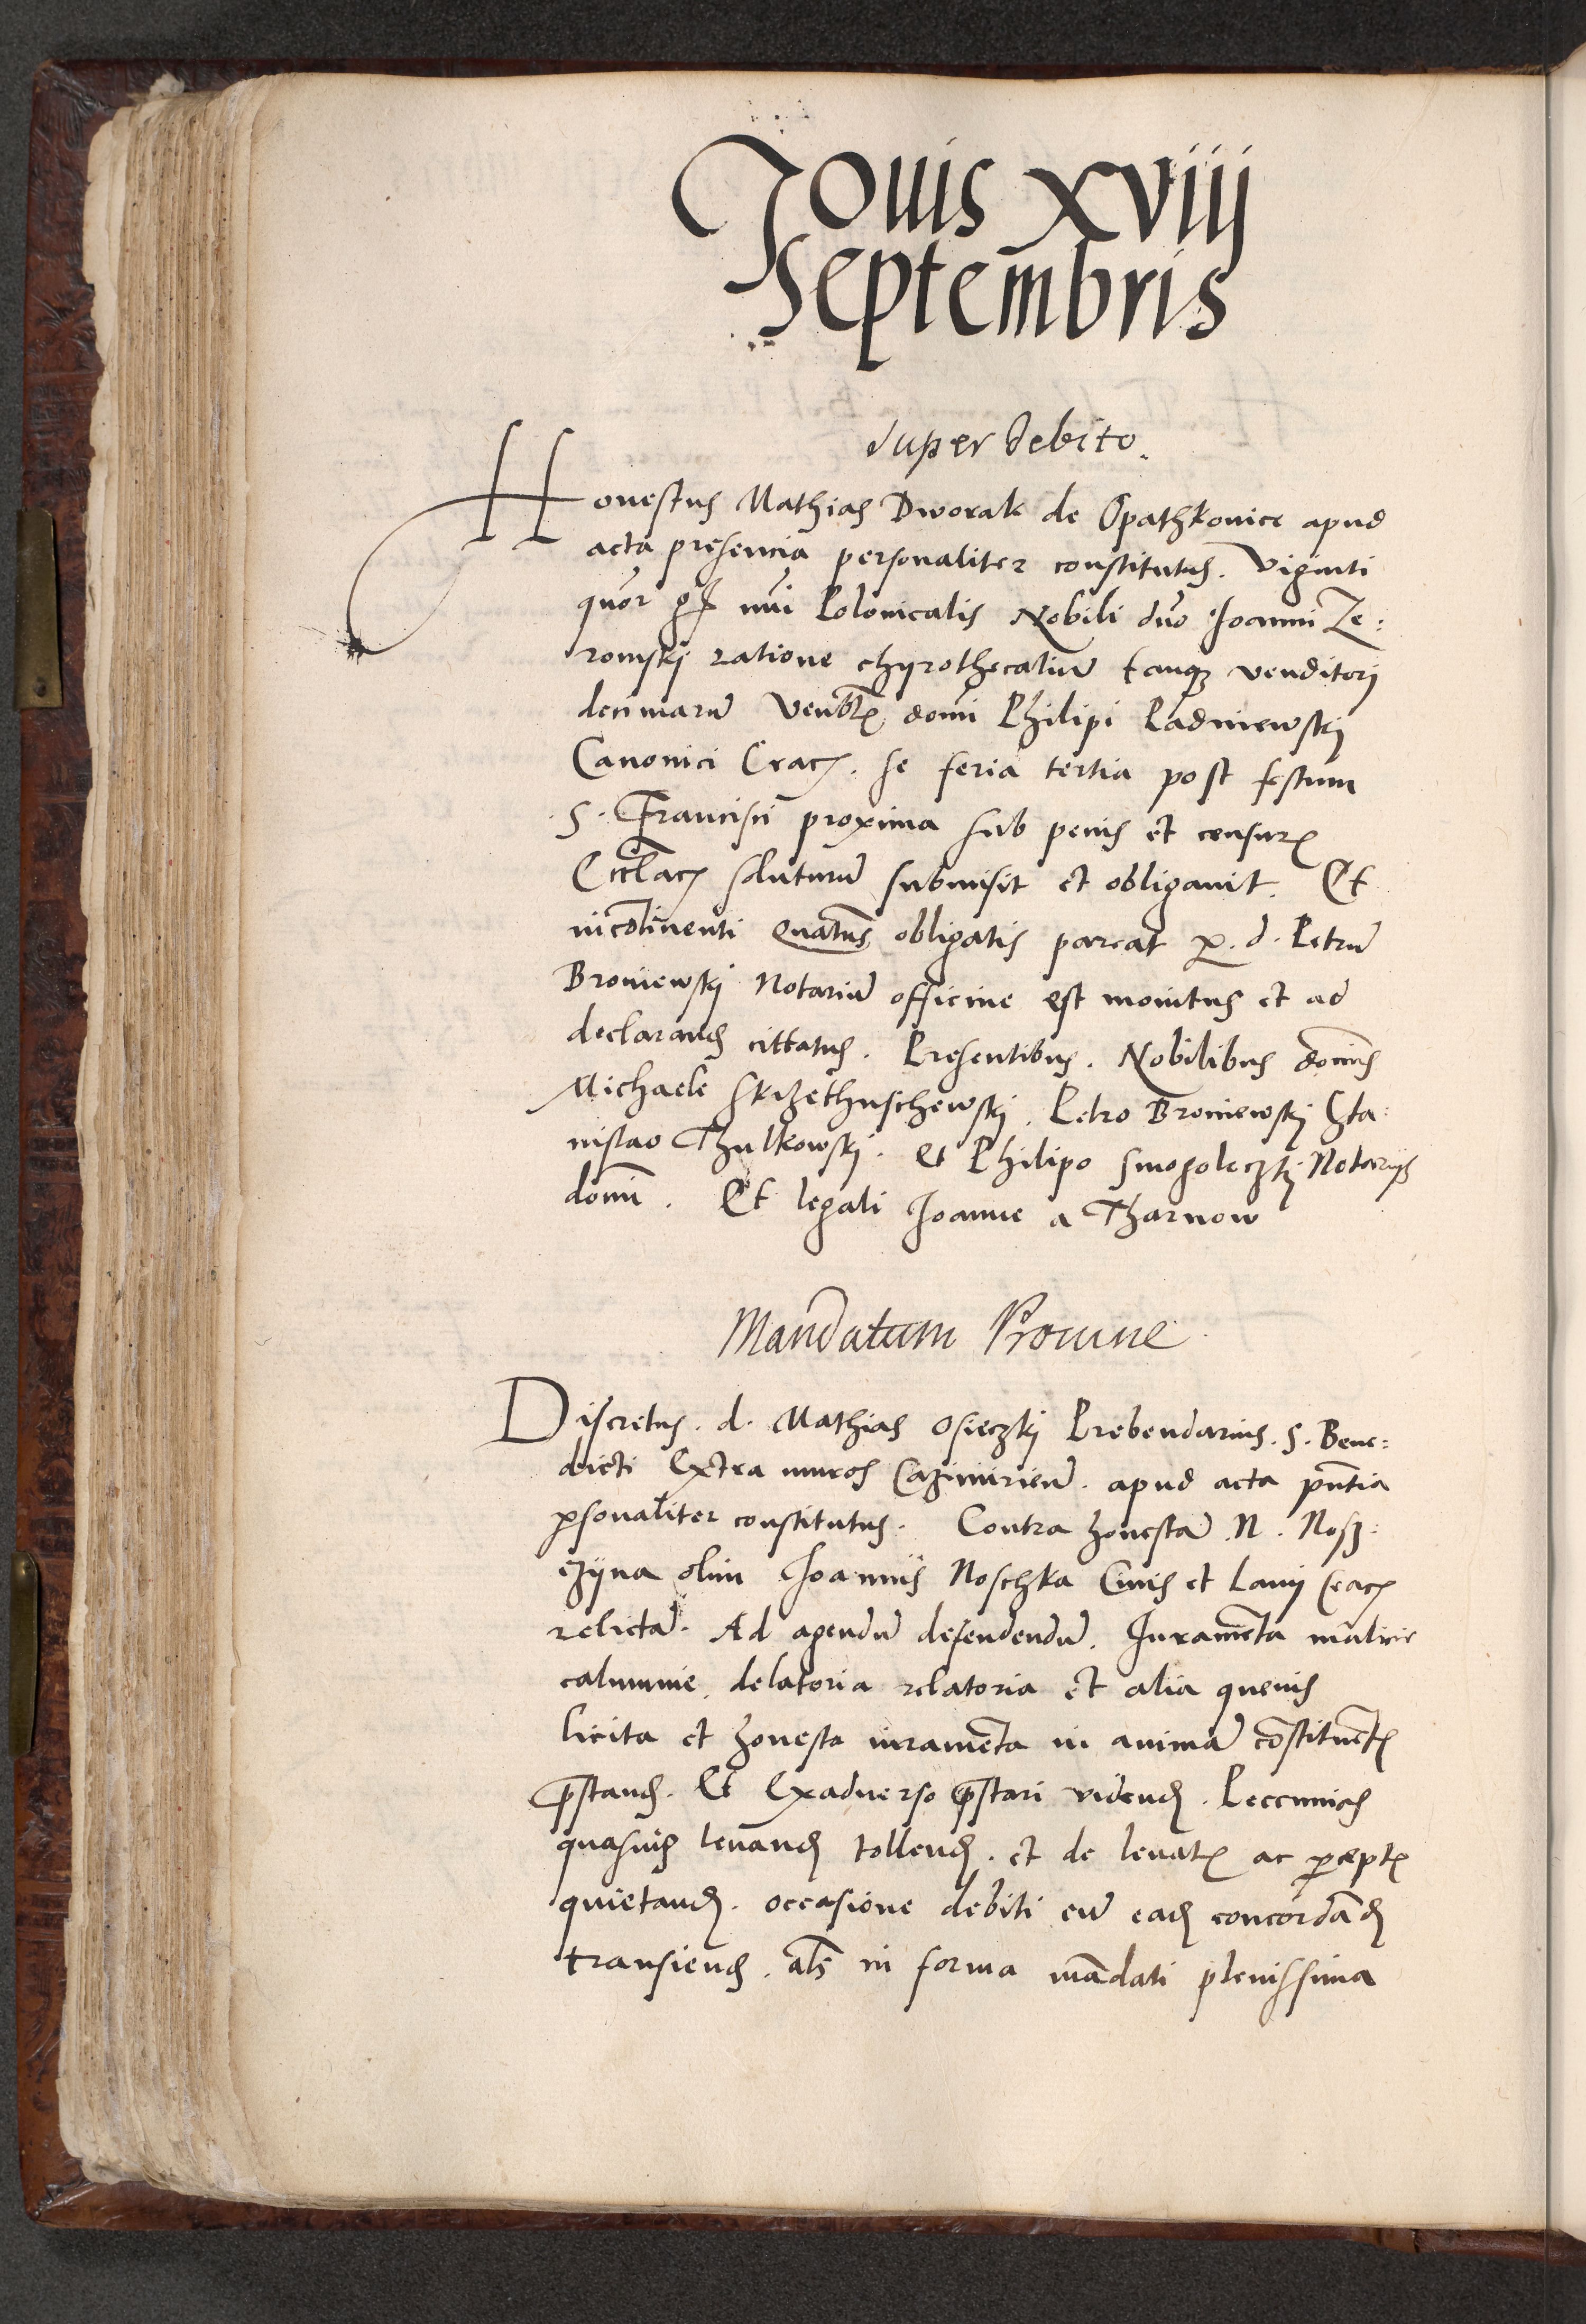 Jouis xviij
Septembris
Super debito
Honestus Mathias Dworak de Opathkovice apud
acta presencia personaliter constitutus. Viginti
quor gr nui Polonicalis Nobili dno Joanni Ze:
romskj ratione chyrothecaliu tanqz venditorj
decimaru Venblis domi Philipi Padniewskj
Canonici Crac. se feria tertia post festum
S. Francisci proxima sub penis et censuris
Eccla soluturu submisit et obligauit. Et
incotinenti quatus obligatis pareat p. d. Petru
Broniewskj Notariu officine est monitus et ad
declarand cittatus. Presentibus. Nobilibus dominis
Michaele Skrzethuschewskj. Petro Broniewskj Sta:
nislao Thulkowskj. et Philipo Smogoleczkj Notarijs
domi. Et legali Joanne a Tharnow
Mandatum Procurae
Discretus. d. Mathias Osieczkj Prebendarius. S. Bene:
dicti Extra muros Cazimirien. apud acta pntia
psonaliter constitutus. Contra honesta N. Nosz:
czyna olim Joannis Noschka Ciuis et Lanij Crac
relicta. Ad agendu defendendu. Juramenta malicie
calumnie, delatoria relatoria et alia queuis
licita et honesta iuramenta in anima constituentis
prestand. Et Exaduerso prestari vidend. Peccunias
quasuis leuand tollend. et de leuatis ac perceptis
quietand. occasione debiti cu ead concordand
transiend. als in forma madati plenissima